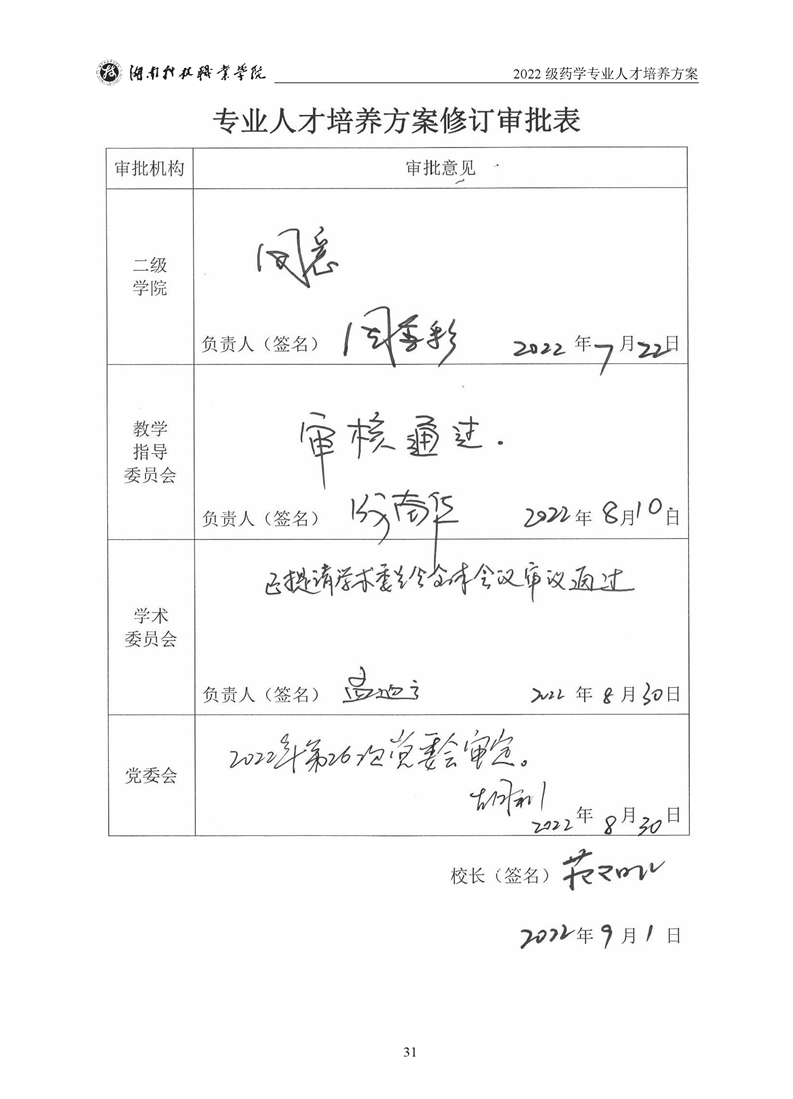 湖南科技职业学院
2022 级药学专业人才培养方案
专业人才培养方案修订审批表
审批机构
审批意见
二级
学院
同意
负责人（签名）
2022 年 7 月 22 日
教学
指导
委员会
审核通过.
负责人（签名）
2022 年 8 月 10 日
学术
委员会
已提请学术委员会全体会议审议通过
负责人（签名）
2022 年 8 月 30 日
党委会
2022年第26次党委会审定。
2022 年 8 月 30 日
校长（签名）
2022 年 9 月 1 日
31